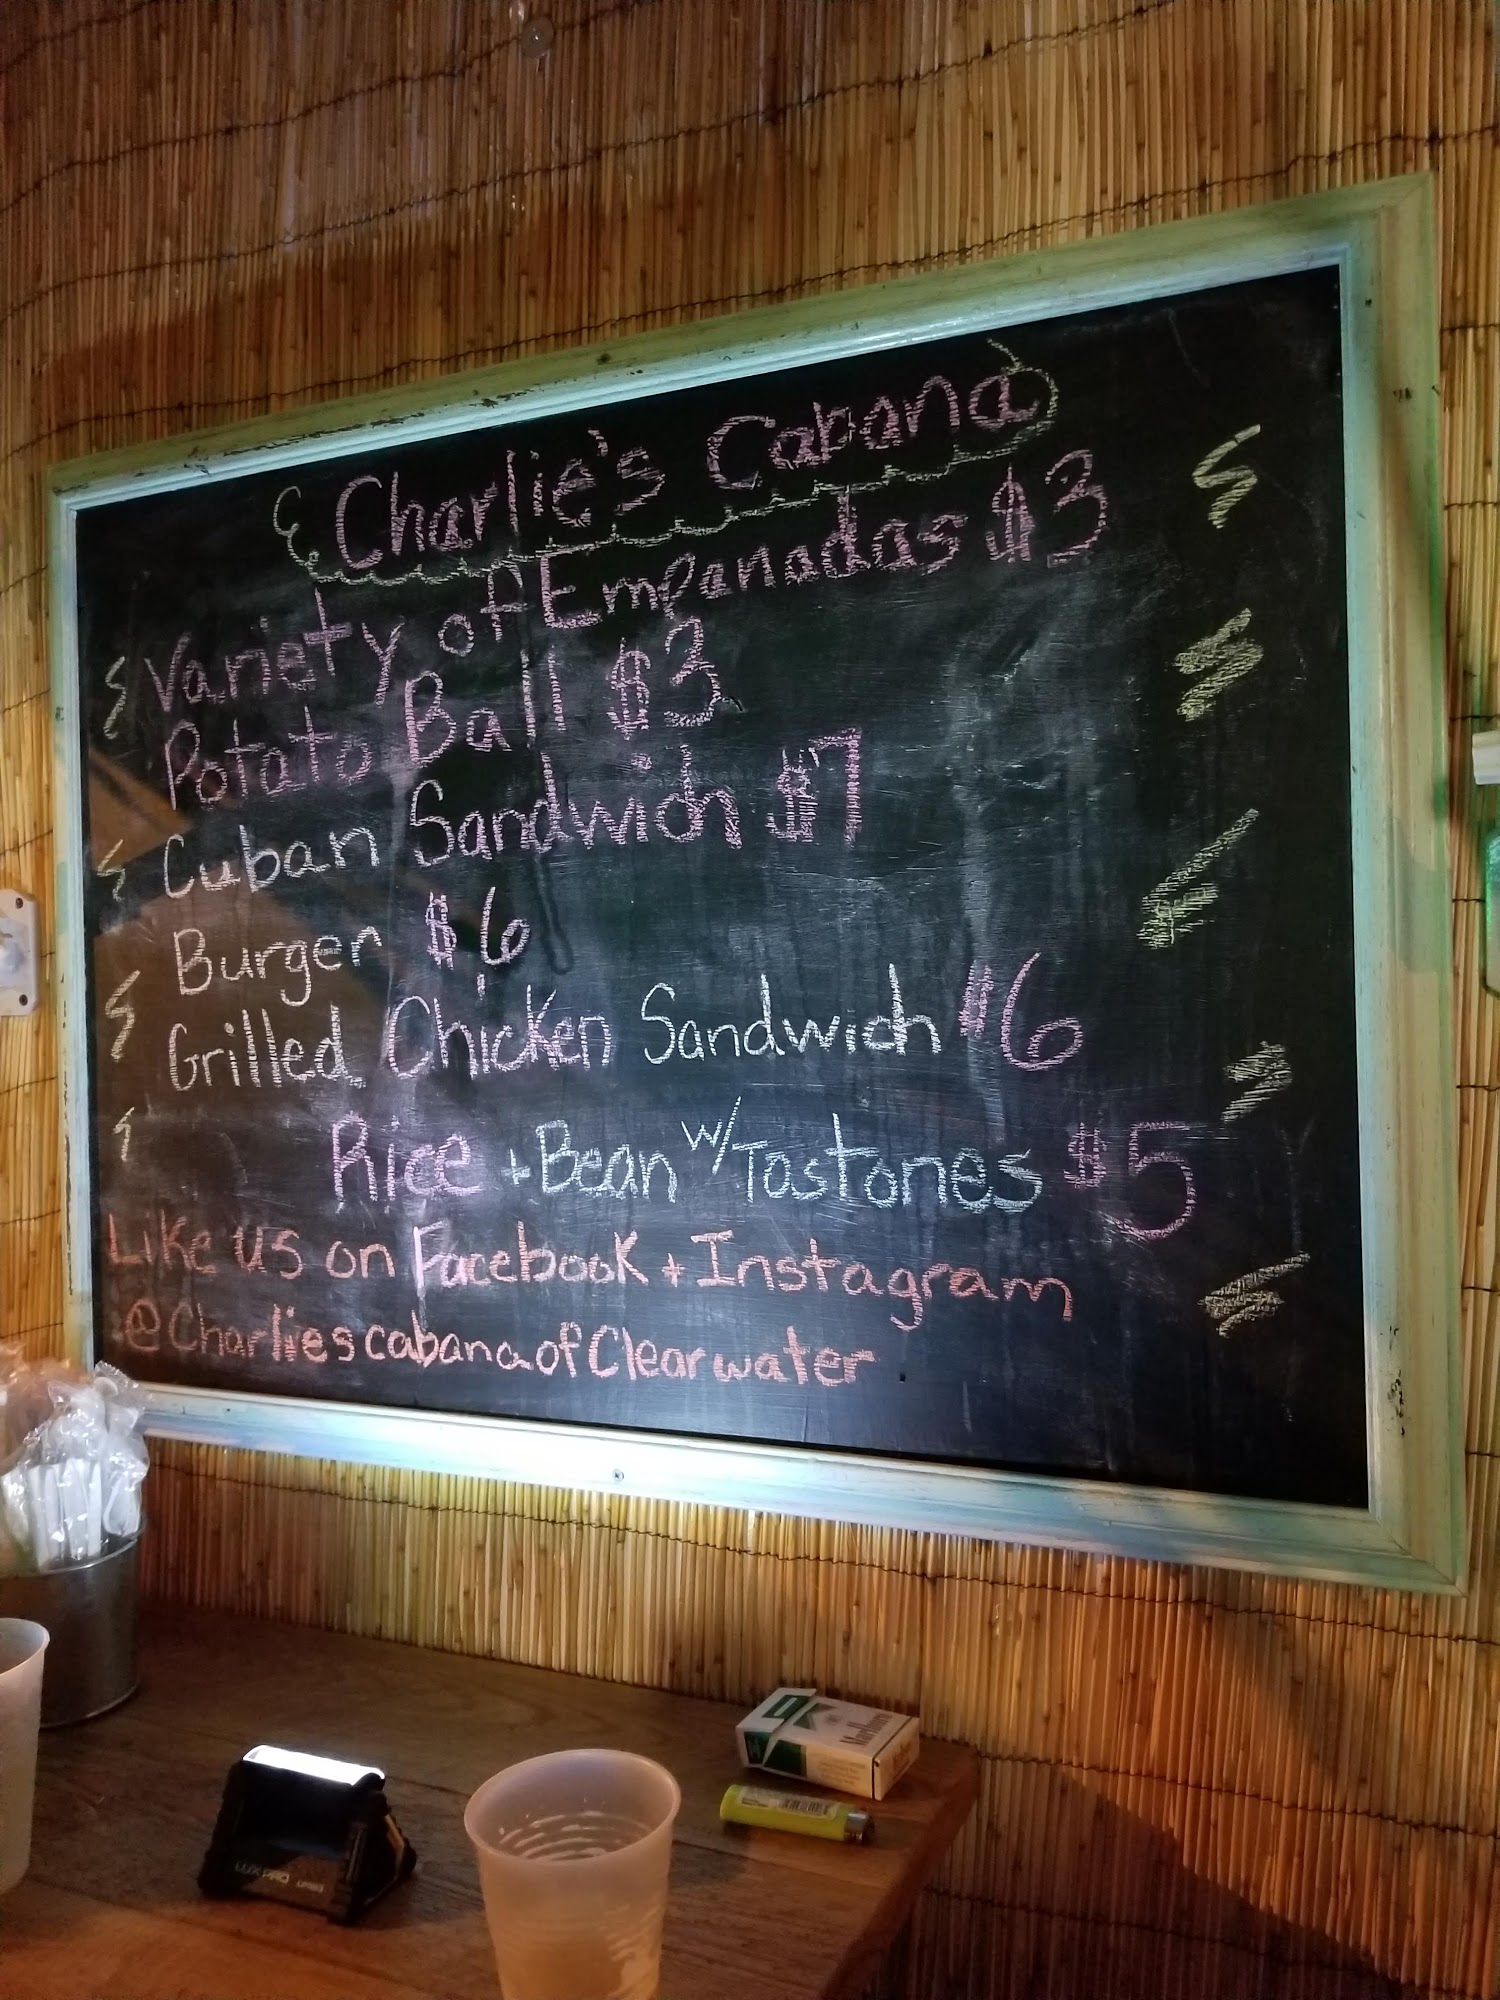 Charlie's Cabana
Variety of Empanadas $3
Potato Ball $3
Cuban Sandwich $7
Burger $6
Grilled Chicken Sandwich $6
Rice + Bean w/Tostones $5
Like us on Facebook + Instagram
@CharliescabanaofClearwater
Marlboro
LUXPRO